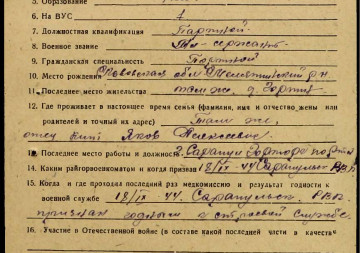 5. Образование
6. На ВУС
7. Должностная квалификация Портной
8. Военное звание Мл-сержант
9. Гражданская специальность Портной
10. Место рождения обл р-н
11. Последнее место жительства там же, г.
12. Где проживает в настоящее время семья (фамилия, имя и отчество жены или
родителей и точный их адрес) Там же,
отец Яков
13. Последнее место работы и должность г. Сарапул портн
14. Каким райгорвоенкоматом и когда призван 18/IX-44 Сарапульс. РВК
15. Когда и где проходил последний раз медкомиссию и результат годности к
военной службе 18/IX-44. Сарапульск. РВК
признан годным к строевой службе
16. Участие в Отечественной войне (в составе какой последней части в качеств